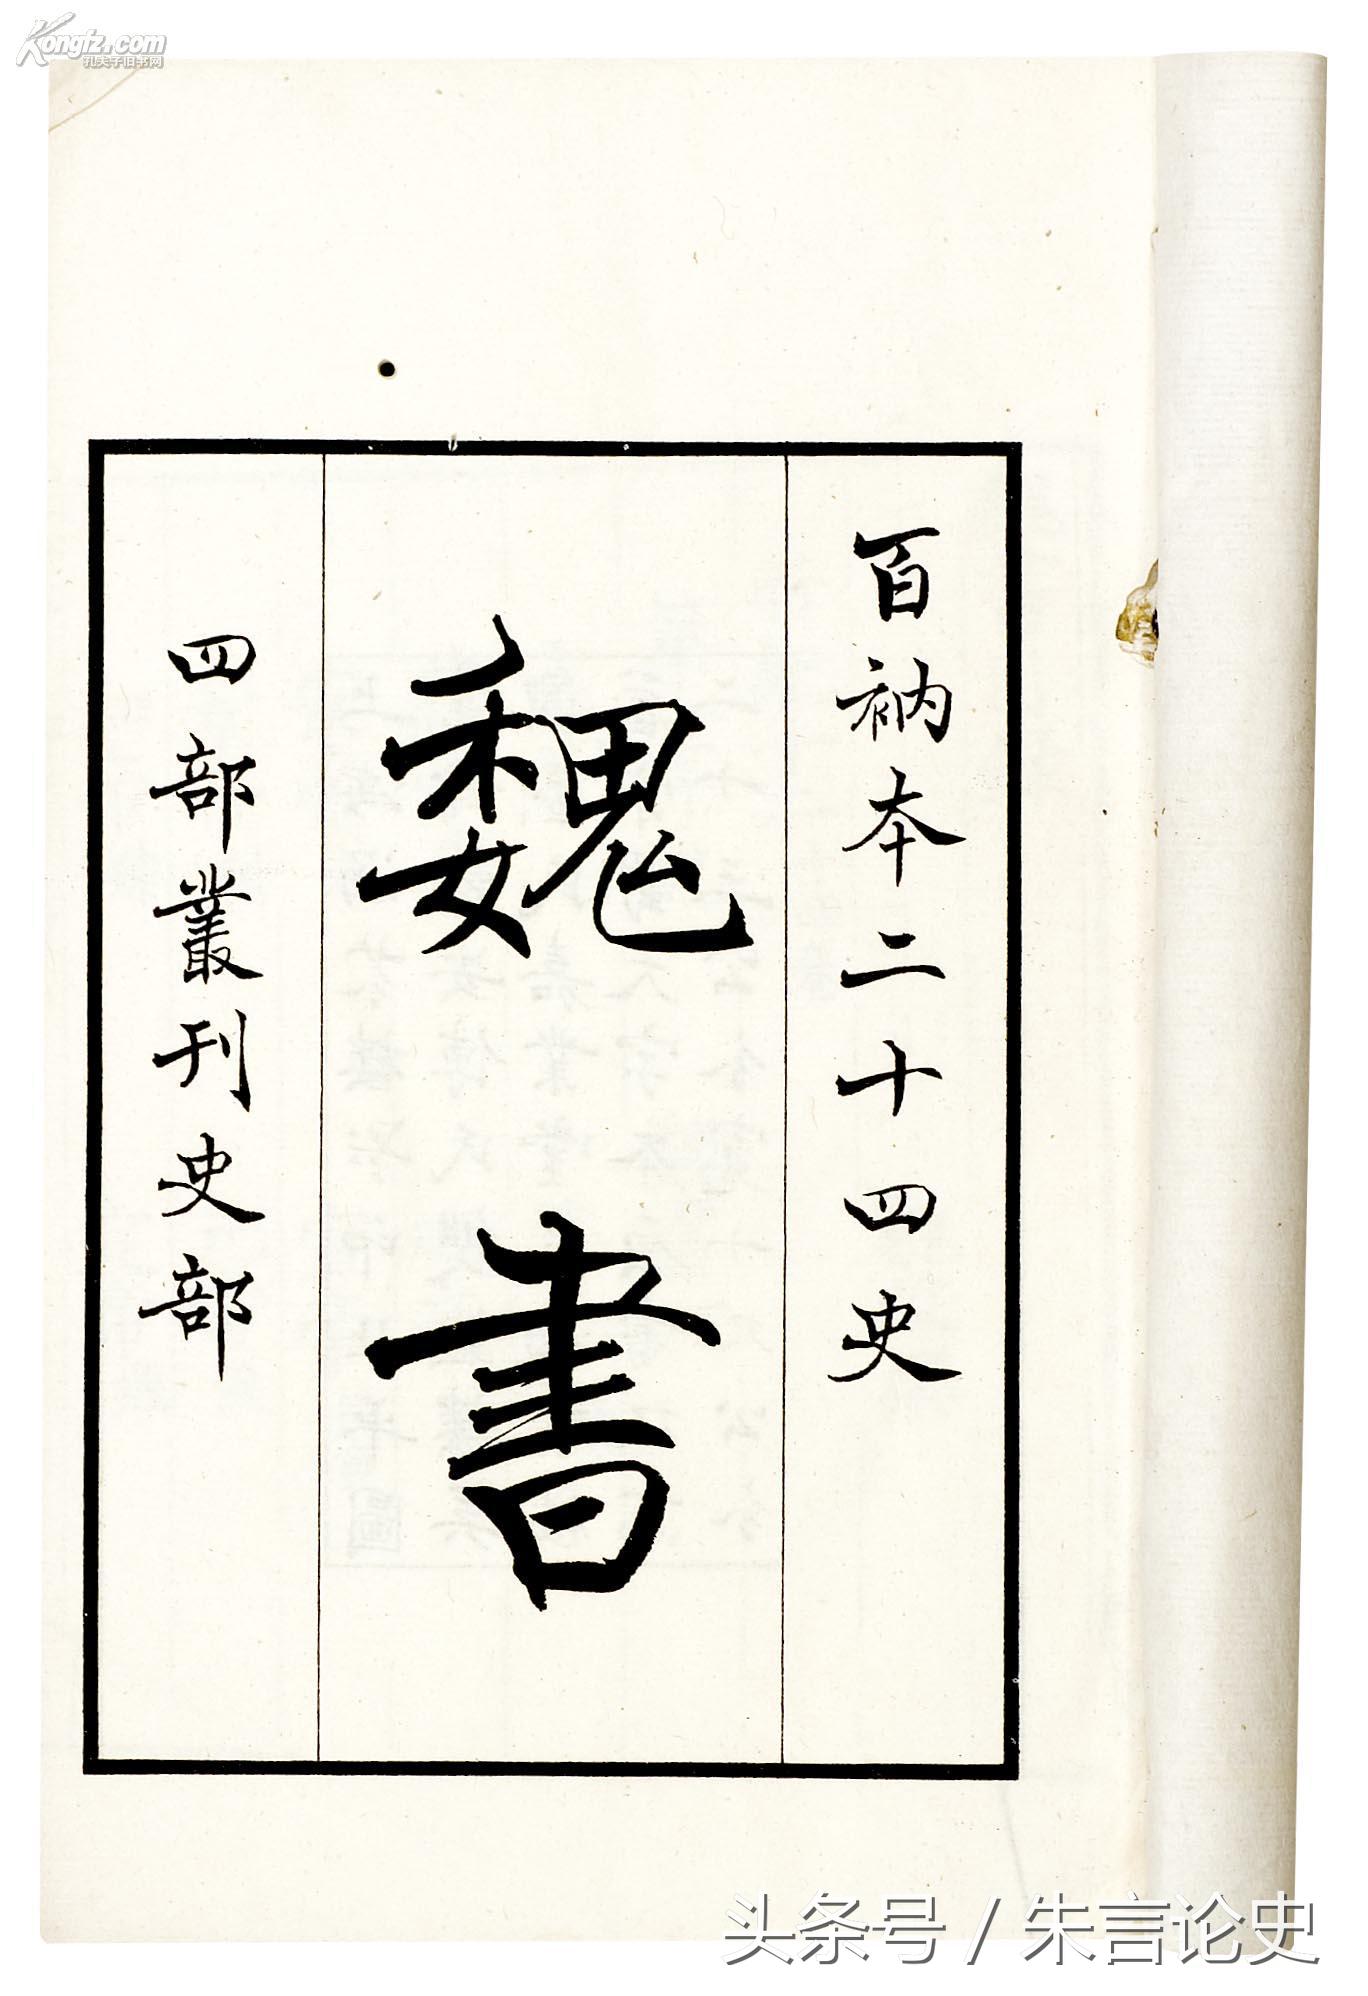 Kongfz.com
孔夫子旧书网
百衲本二十四史
魏書
四部叢刊史部
头条号 / 朱言论史